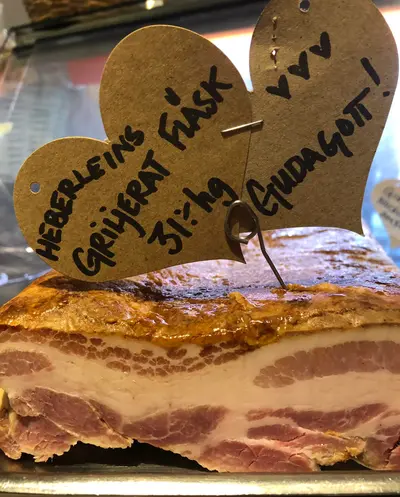 HEBERLEINS
GRILJERAT FLÄSK
31:- hg
♥ ♥ ♥
GUDAGOTT!